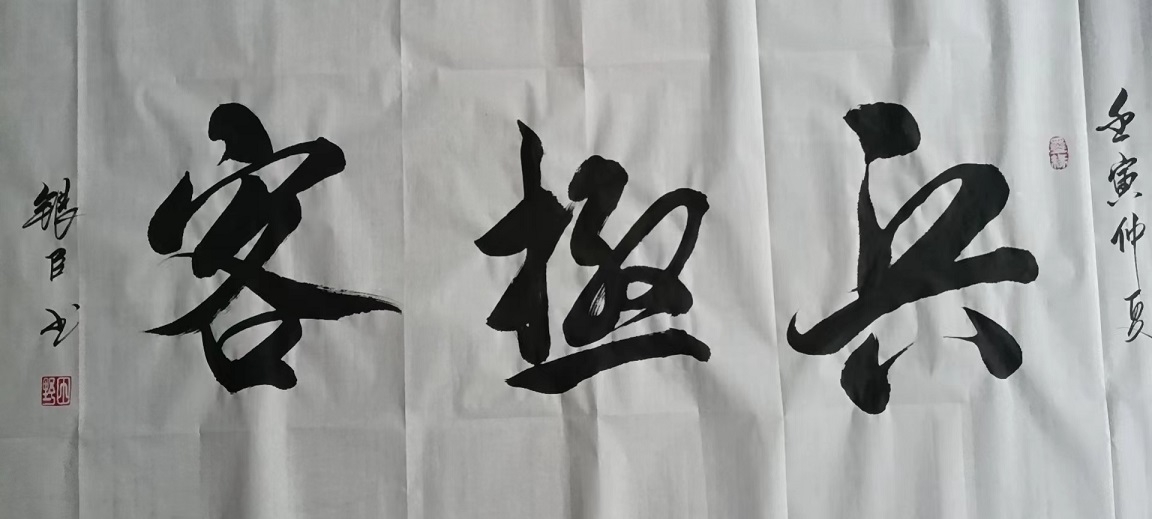 壬寅仲夏
兵極客
银臣书